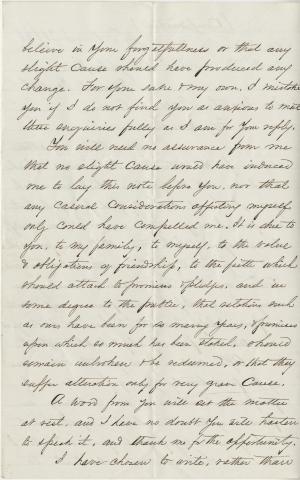 believe in your forgetfulness or that any
slight cause should have produced any
change. For your sake & my own, I mistake
you if I do not find you as anxious to meet
these enquiries fully as I am for your reply.
You will need no assurance from me
that no slight cause would have induced
me to lay this note before you, nor that
any casual considerations affecting myself
only could have compelled me. It is due to
you, to my family, to myself, to the value
& obligations of friendship, to the faith which
should attach to promises & pledges, and in
some degree to the public, that relations such
as ours have been for so many years, & promises
upon which so much has been staked, should
remain unbroken & be redeemed, or that they
suffer alteration only for very grave cause.
A word from you will set the matter
at rest, and I have no doubt you will hasten
to speak it, and thank me for the opportunity.
I have chosen to write, rather than